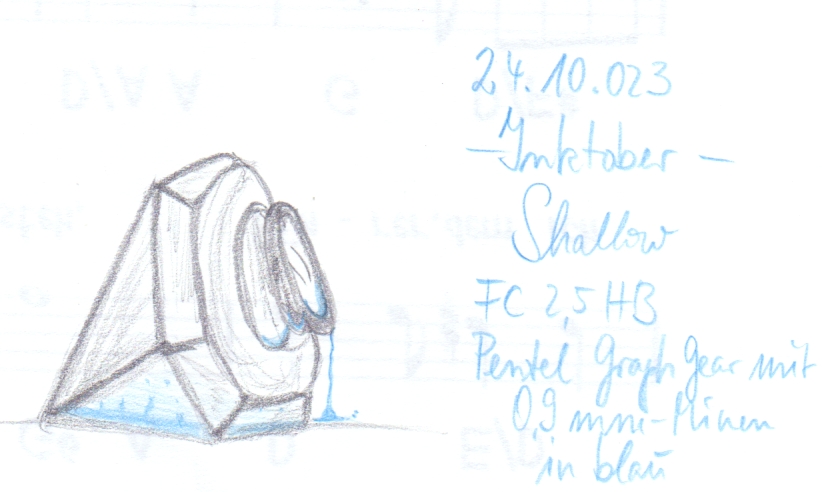 24.10.023
- Inktober -
Shallow
FC 2,5 HB
Pentel Graph Gear mit
0,9 mm-Minen
in blau